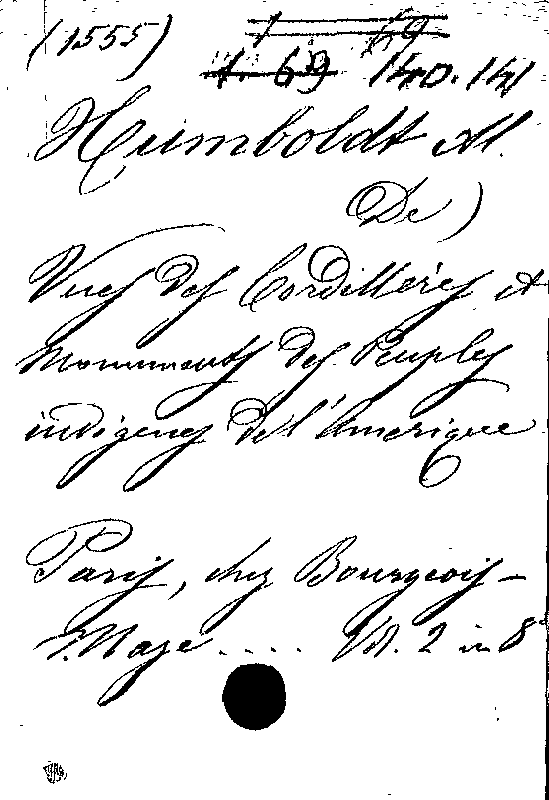 (1555) 1 69
1. 69 140.141
Humboldt Al.
De)
Vues des Cordillères et
Monuments des Peuples
indigenes de l'Amerique
Paris, chez Bourgeois-
Maze..... Vol. 2 in 8°